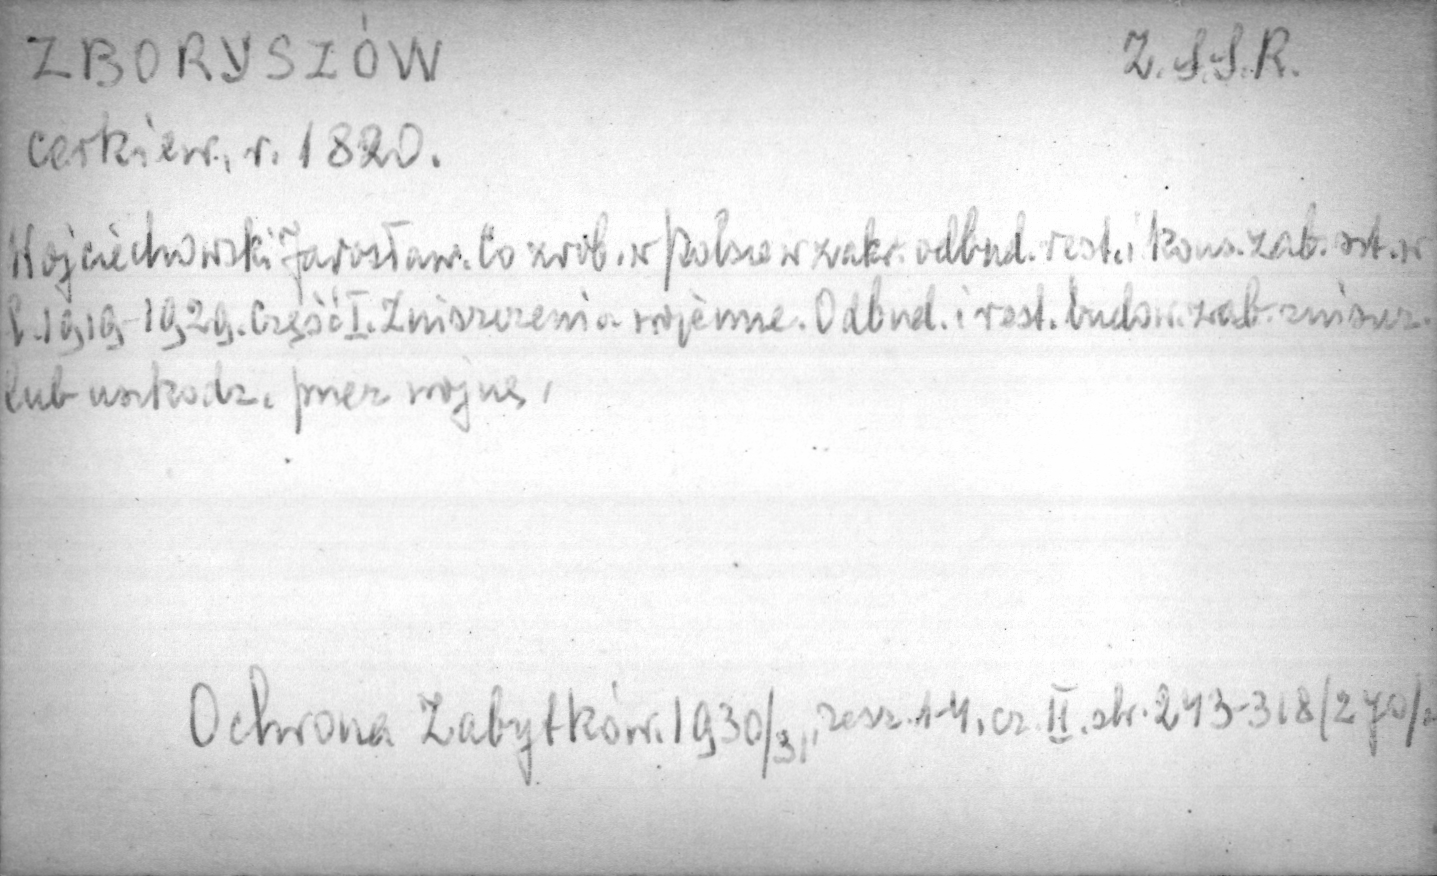 ZBORYSZÓW Z.S.S.R.
cerkiew, r. 1820.
Wojciechowski Jarosław. Co zrob. w Polsce w zakr. odbud. rest. i kons. zab. ost. w
l. 1919-1929. Część I. Zniszczenia wojenne. Odbud. i rest. budow. zab. zniszcz.
lub uszkodz. przez wojnę,
Ochrona Zabytków. 1930/31, zesz. 1-4, cz. II. str. 243-318/270/